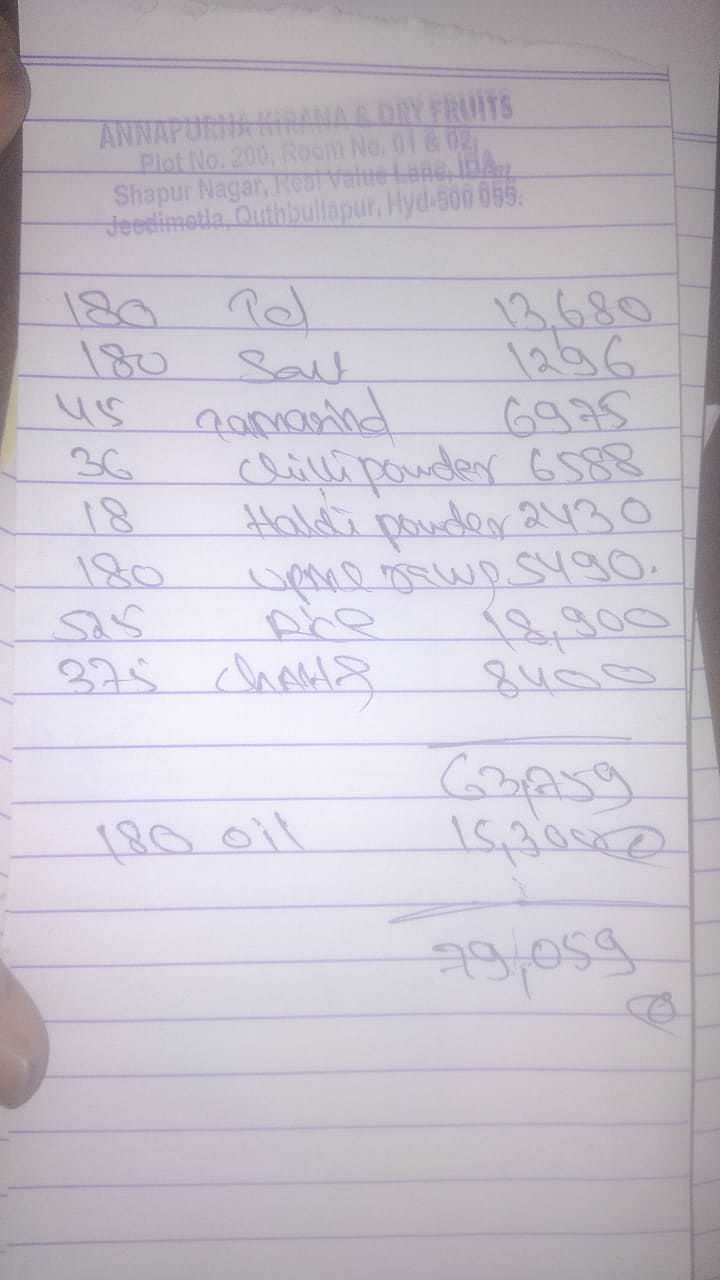 ANNAPURNA KIRANA & DRY FRUITS
Plot No. 200, Room No. 01 & 02,
Shapur Nagar, Real Value Lane, IDA.,
Jeedimetla, Quthbullapur, Hyd-500 055.
180 Td 13,680
180 Salt 1296
45 Tamarind 6975
36 chilli powder 6588
18 Haldi powder 2430
180 upma 5490.
525 Rice 18,900
375 8400
63,759
180 oil 15,300
79,059